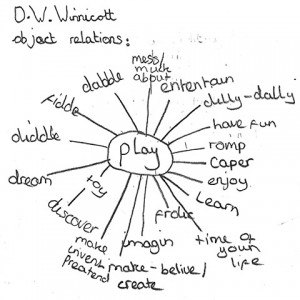 D.W. Winnicott
object relations:
mess/
muck
about
dabble
entertain
fiddle
dully-dally
diddle
have fun
romp
play
caper
dream
enjoy
toy
learn
discover
frolic
make
invent
preatend
imagin
make-belive/
create
time of
your
life